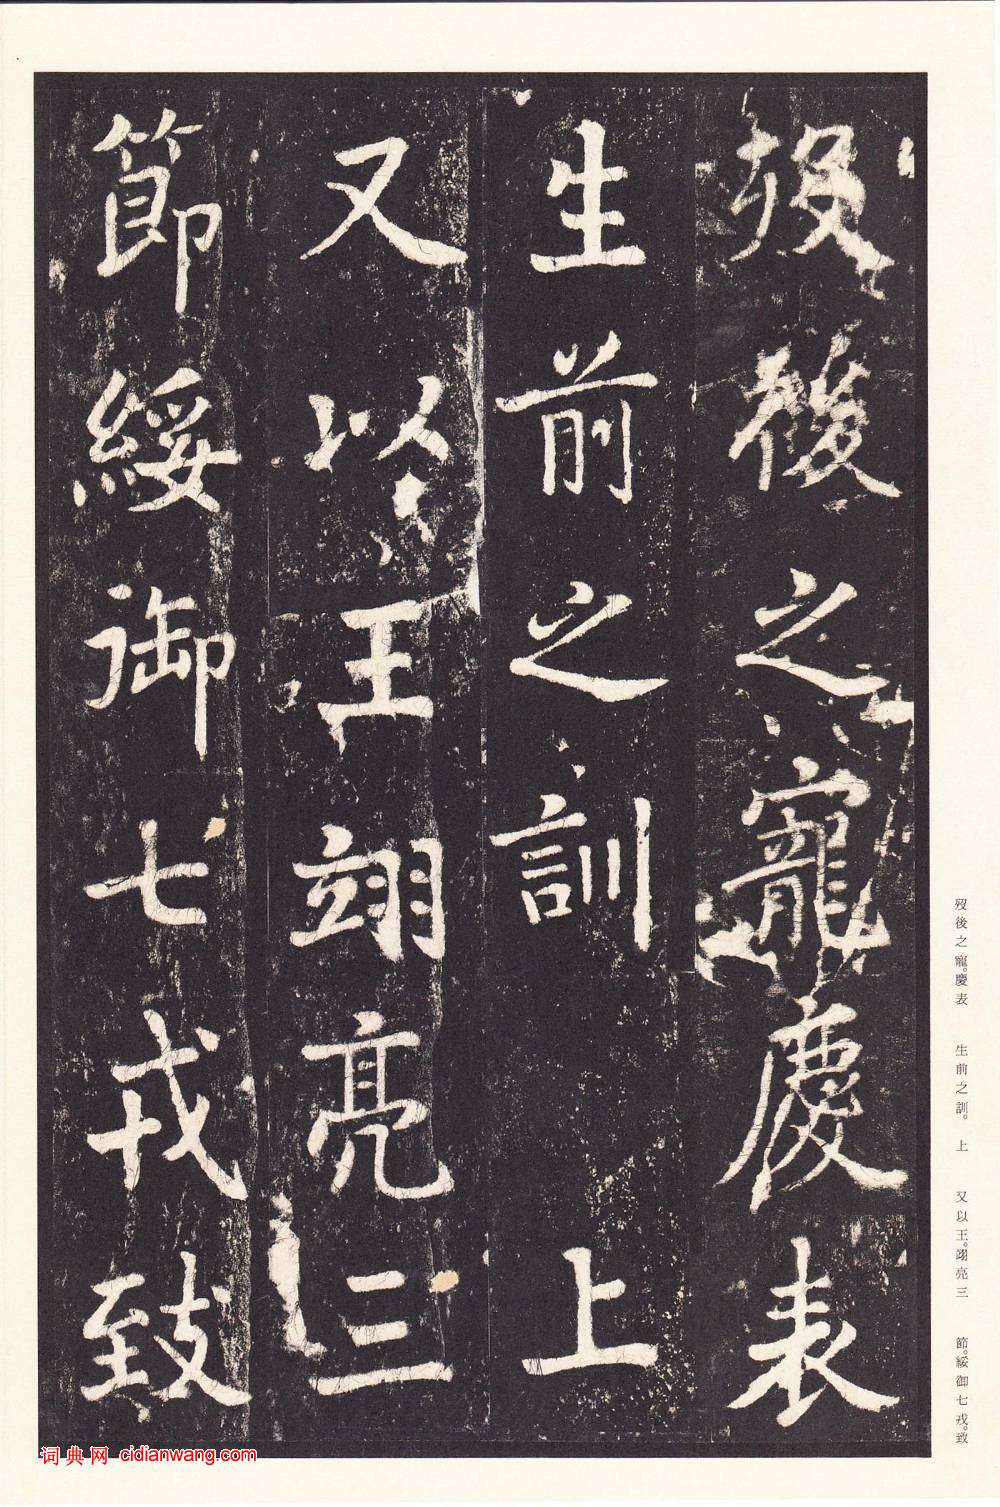 歿後之寵慶表
生前之訓 上
又以王翊亮三
節綏御七戎致
歿後之寵。慶表 生前之訓。 上 又以王。翊亮三 節。綏御七戎。致
词典网 cidianwang.com